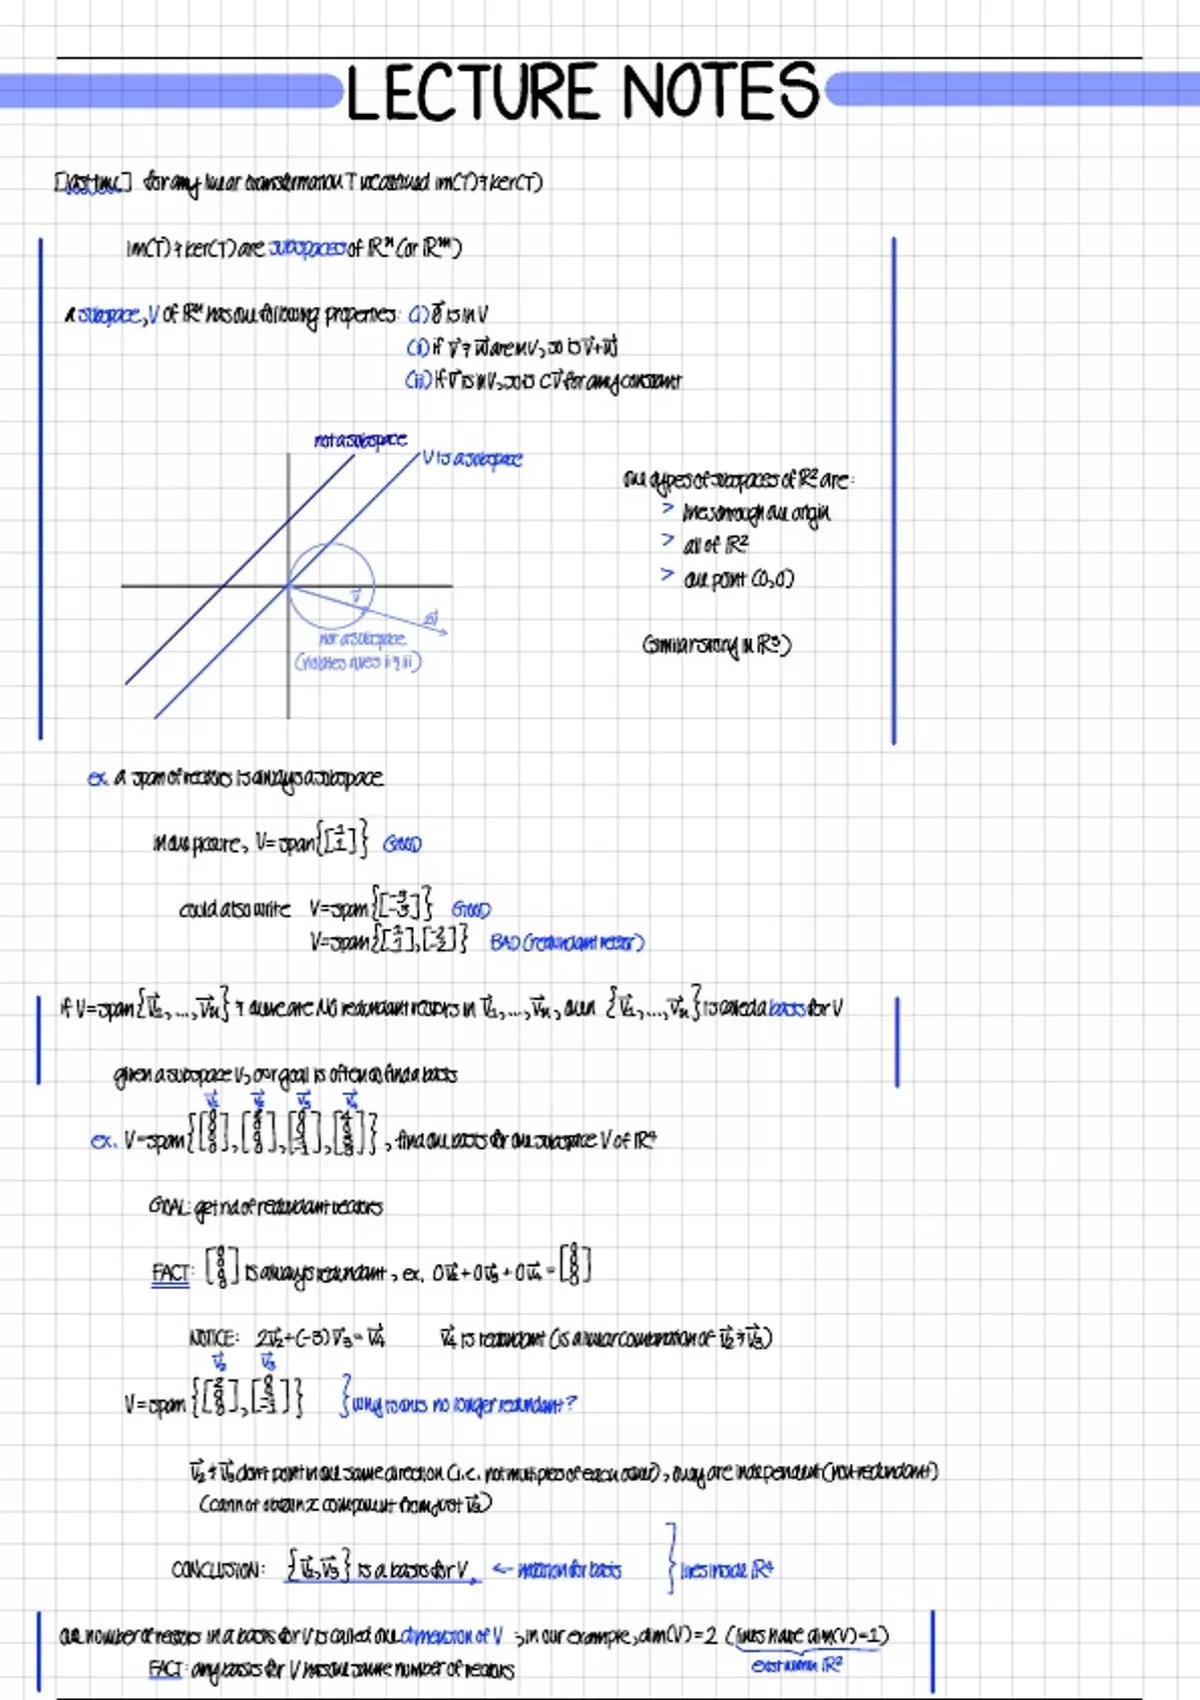 LECTURE NOTES
[last time] for any linear transformation T we defined im(T) & ker(T)
im(T) & ker(T) are subspaces of ℝⁿ (or ℝᵐ)
a subspace, V of ℝⁿ has the following properties: (i) 0⃗ is in V
(ii) if v⃗ & w⃗ are in V, so is v⃗+w⃗
(iii) if v⃗ is in V, so is cv⃗ for any constant
not a subspace
V is a subspace
the types of subspaces of ℝ² are:
> lines through the origin
> all of ℝ²
> the point (0,0)
v⃗
not a subspace
(violates rules ii & iii)
(similar story in ℝ³)
ex. a span of vectors is always a subspace
in our picture, V=span{[1 1]} GOOD
could also write V=span{[-3 -3]} GOOD
V=span{[1 1],[-2 -2]} BAD (redundant vector)
if V=span{v⃗₁,...,v⃗ₙ} & there are NO redundant vectors in v⃗₁,...,v⃗ₙ, then {v⃗₁,...,v⃗ₙ} is called a basis for V
given a subspace V, our goal is often to find a basis
v⃗₁ v⃗₂ v⃗₃ v⃗₄
ex. V=span , find the basis for the subspace V of ℝ⁴
GOAL: get rid of redundant vectors
FACT: [0 0 0 0] is always redundant, ex. 0v⃗₂+0v⃗₃+0v⃗₄=[0 0 0 0]
NOTICE: 2v⃗₂+(-3)v⃗₃=v⃗₄ v⃗₄ is redundant (is a linear combination of v⃗₂ & v⃗₃)
v⃗₂ v⃗₃
V=span{[2 0 0 0],[0 0 -1]} } why is this no longer redundant?
v⃗₂ & v⃗₃ don't point in the same direction (i.e. not multiples of each other), they are independent (not redundant)
(cannot obtain x component from just v⃗₃)
CONCLUSION: {v⃗₂,v⃗₃} is a basis for V ← notation for basis } lives inside ℝ⁴
the number of vectors in a basis for V is called the dimension of V ; in our example, dim(V)=2 (lines have dim(V)=1)
FACT: any basis for V has the same number of vectors
exist within ℝ²